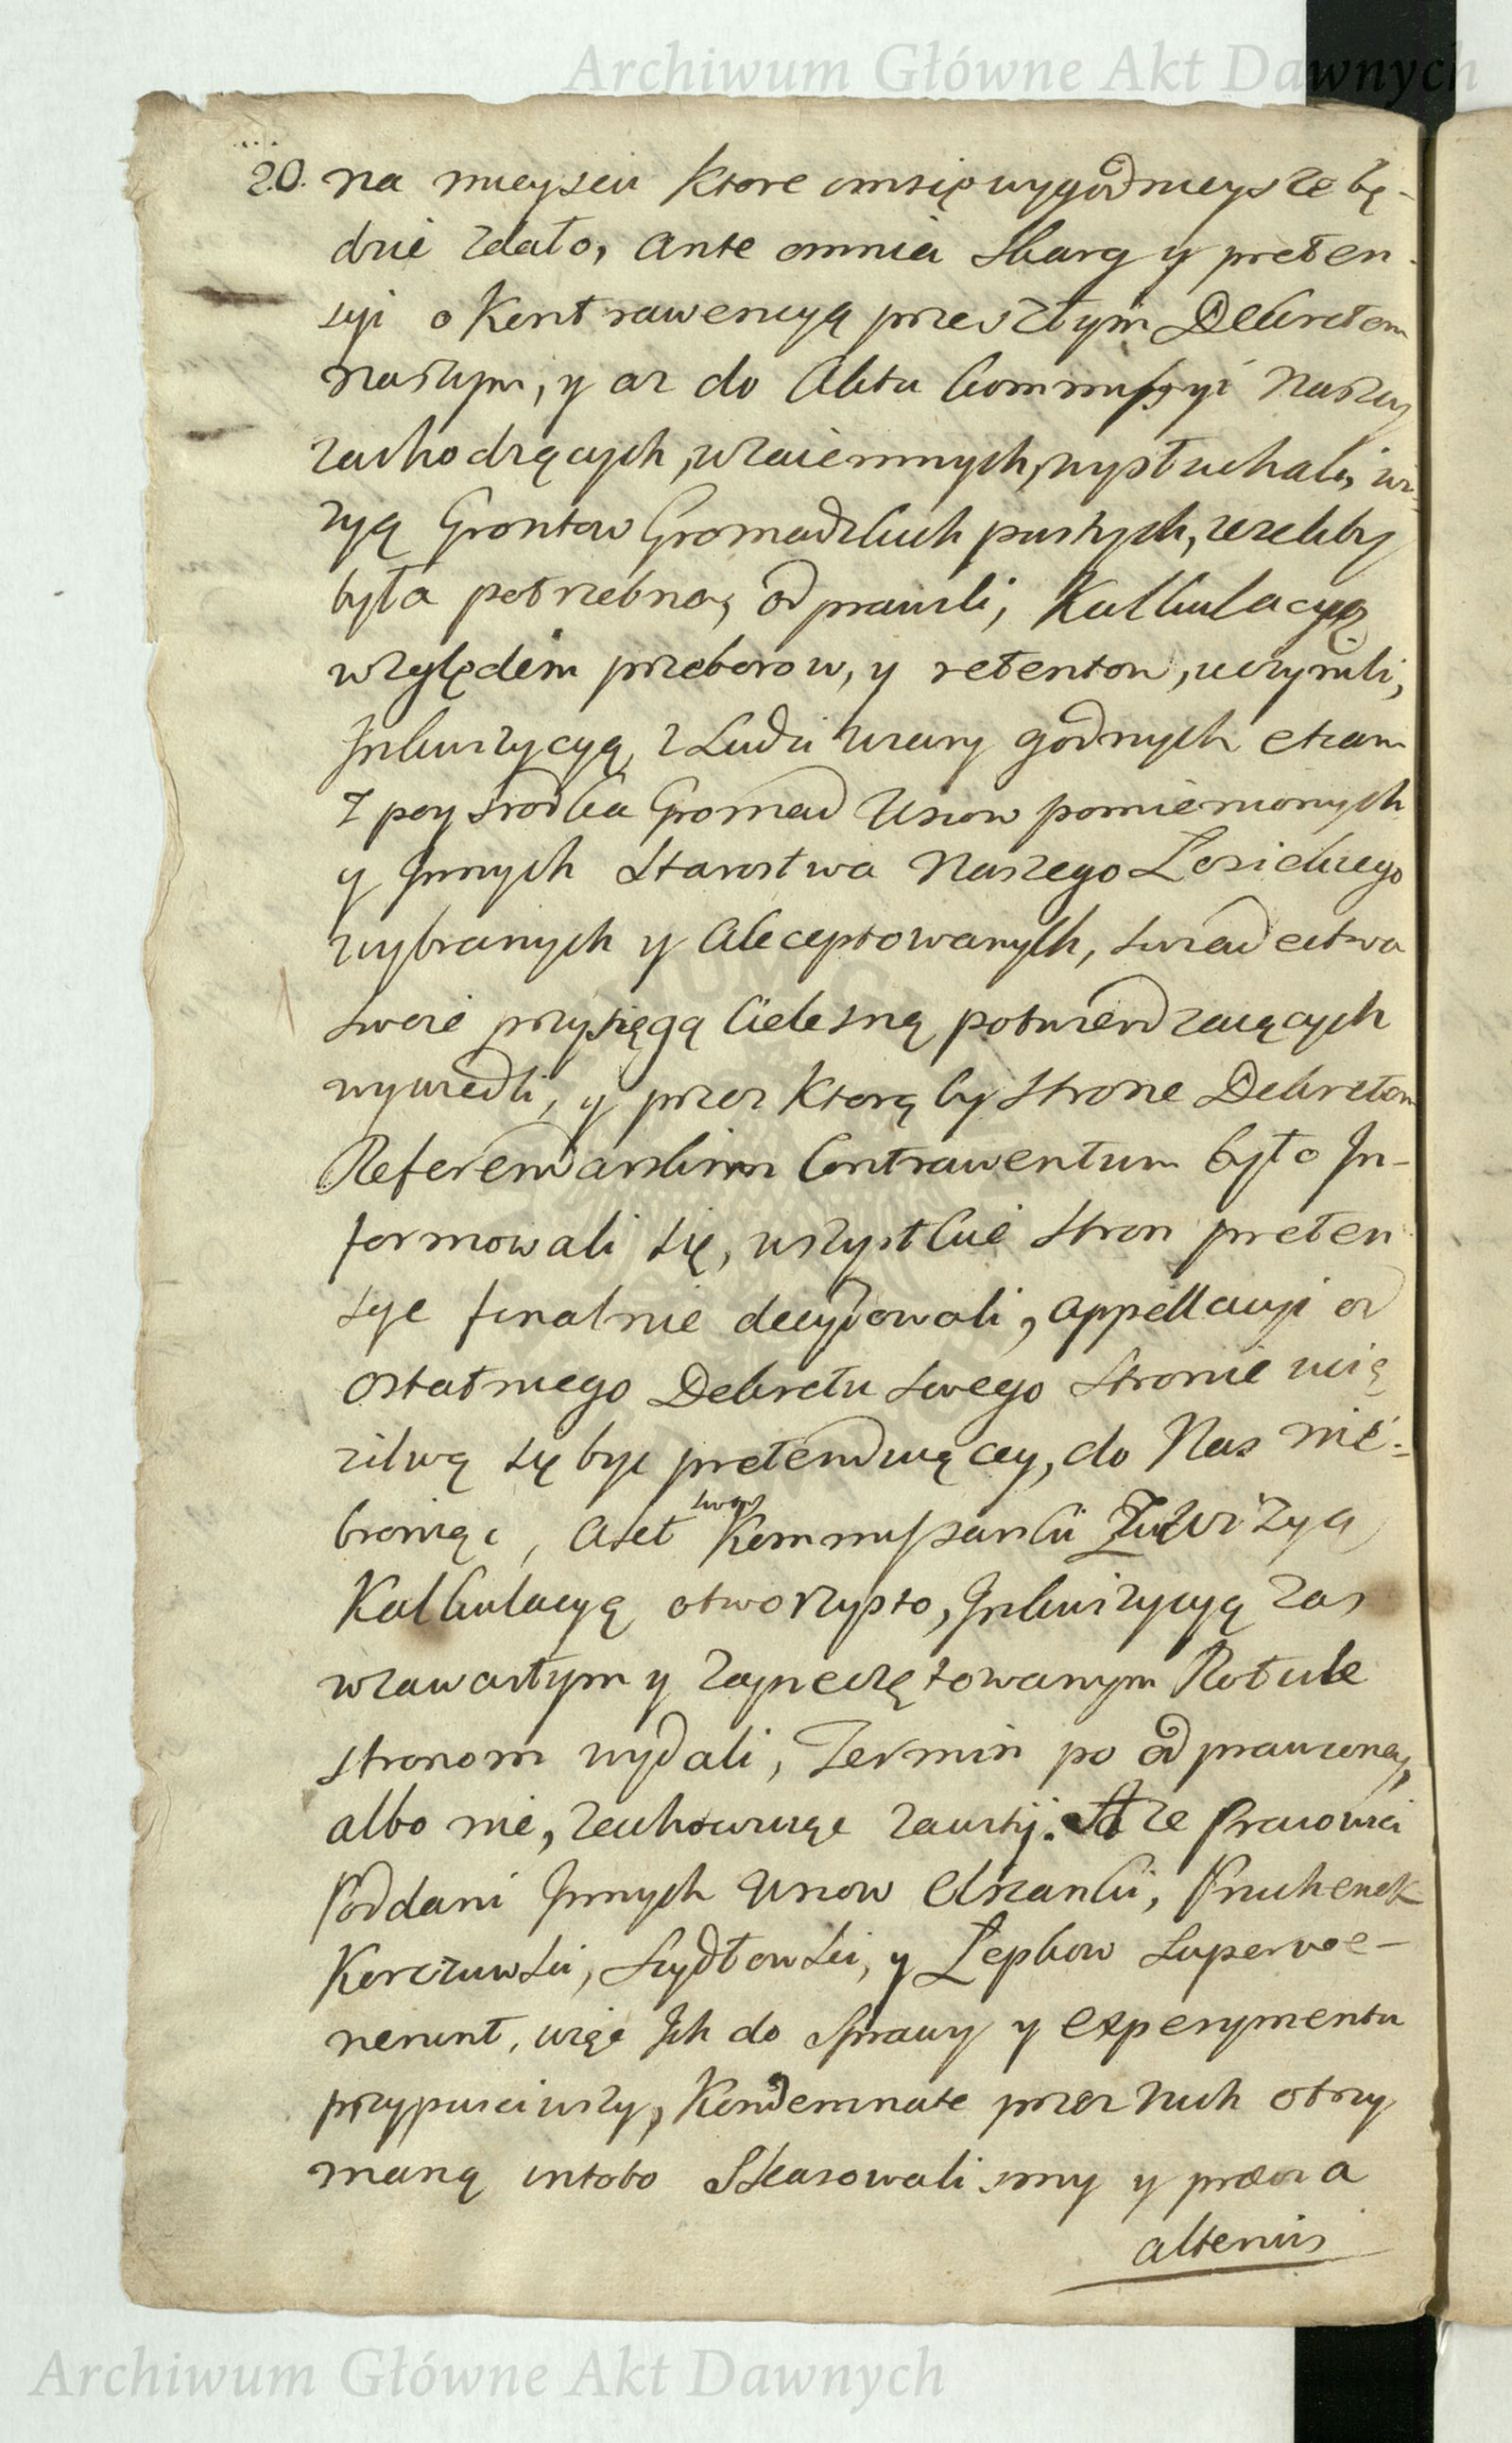 Archiwum Główne Akt Dawnych
20. na mieyscu ktore im się wygodnieysze bę-
dzie zdało, ante omnia skarg y preten-
syi o kontrawencyą przeszłym Dekretom
naszym, y az do Aktu Kommissyi Naszey
zachodzących, wzaiemnych, wysłuchali, wi-
zyą Grontow Gromadzkich pustych, iezeliby
była potrzebna, odprawili, Kalkulacyą
względem przeborow, y retentow, uczynili,
Inkwizycyą z Ludzi wiary godnych etiam
z poysrodka Gromad Uscow pomienionych
y Innych Starostwa Naszego Łosickiego
wybranych y Akceptowanych, swiadectwa
swoie przysięgą Cielesną potwierdzaiących
wywiedli, y przez ktorą by strone Dekretom
Referendarskim Contrawentum było In-
formowali się, wszystkie stron preten-
sye finalnie decydowali, appellacyi od
ostatniego Dekretu swego stronie ucią
zliwą się byc pretenduiącey, do Nas nie-
broniąc, Akt swoy Kommissarski Wizyą
Kalkulacyą otworzysto, Inkwizycyą zas
w zawartym y zapieczętowanym Rotule
stronom wydali, Termin po odprawioney,
albo nie, zachowuiąc zawity. A ze Pracowici
Poddani Innych Uscow Chszanki, Pruchenek
Korczuwski, Szydłowski, y Łepkow superve-
nerunt, więc Ich do Sprawy y experymentu
przypusciwszy, Kondemnate przez Nich otrzy
maną in toto skasowali smy y prawa
alterius
Archiwum Główne Akt Dawnych